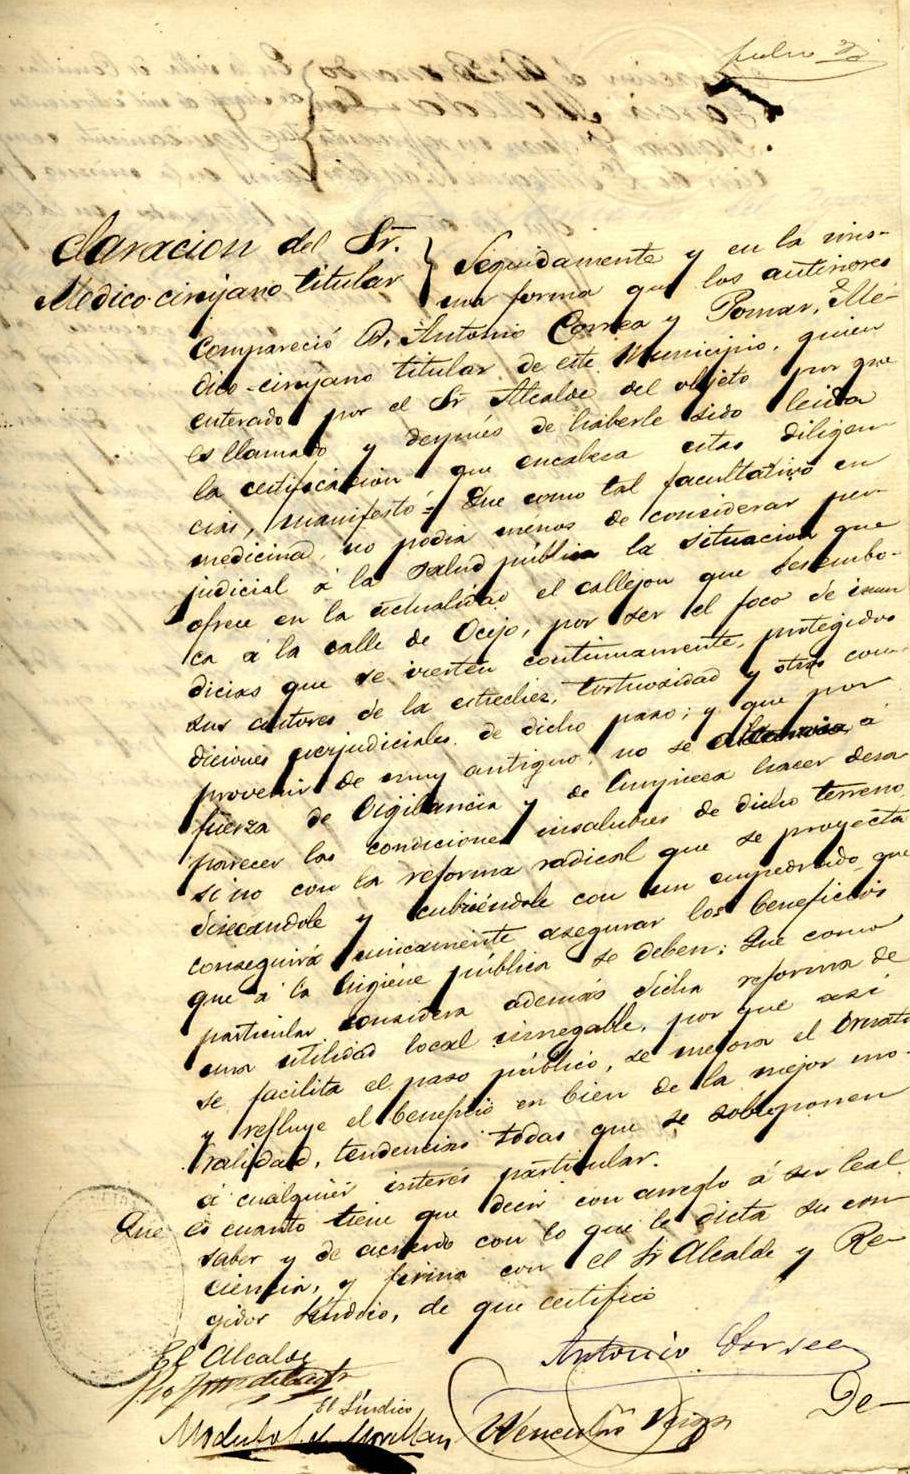 claracion del Sr.
Médico-cirujano titular
Seguidamente y en la mis-
ma forma que los anteriores
compareció D. Antonio Correa y Pomar, Mé-
dico-cirujano titular de este Municipio, quien
enterado por el Sr Alcalde del objeto por que
es llamado y después de haberle sido leida
la certificacion que encabeza estas diligen
cias, manifestó = Que como tal facultativo en
medicina, no podia menos de considerar per
judicial á la salud pública la situacion que
ofrece en la actualidad el callejon que desembo-
ca á la calle de Ocejo, por ser el foco de inmun
dicias que se vierten continuamente, protegidos
sus autores de la estrechez, tortuosidad y otras con-
diciones perjudiciales de dicho paso; y que por
provenir de muy antiguo, no se á
fuerza de vigilancia y de limpieza hacer desa
parecer las condiciones insalubres de dicho terreno
si no con la reforma radical que se proyecta
disecandole y cubriéndole con un empedrado que
conseguirá unicamente asegurar los beneficios
que á la higiene pública se deben; Que como
particular considera además dicha reforma de
una utilidad local innegable, por que así
se facilita el paso público, se mejora el ornato
y refluye el beneficio en bien de la mejor mo-
ralidad, tendencias todas que se sobreponen
á cualquier interés particular.
Que es cuanto tiene que decir con arreglo á su leal
saber y de acuerdo con lo que le dicta su con
ciencia, y firma con el Sr Alcalde y Re-
gidor Síndico, de que certifico
Antonio Correa
El Alcalde
El Síndico
De-